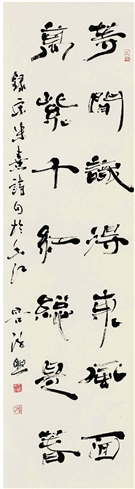 等閒識得東風面
萬紫千紅總是春
錄宋朱熹詩句於